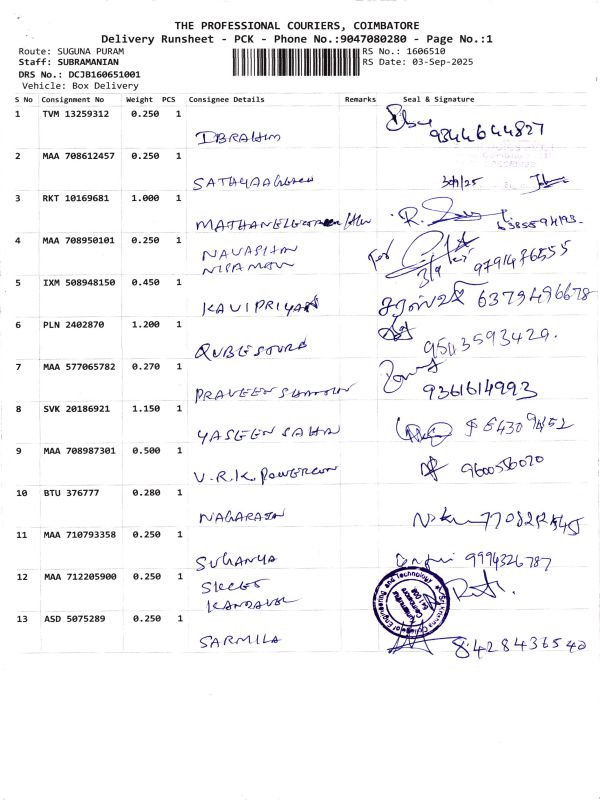 THE PROFESSIONAL COURIERS, COIMBATORE
Delivery Runsheet - PCK - Phone No.:9047080280 - Page No.:1
Route: SUGUNA PURAM
RS No.: 1606510
Staff: SUBRAMANIAN
RS Date: 03-Sep-2025
DRS No.: DCJB160651001
Vehicle: Box Delivery
S No Consignment No Weight PCS Consignee Details Remarks Seal & Signature
1 TVM 13259312 0.250 1
IBRAHIM 9344644827
2 MAA 708612457 0.250 1
3 RKT 10169681 1.000 1
4 MAA 708950101 0.250 1
for
3/9
9791476555
5 IXM 508948150 0.450 1
KAVIPRIYAN 6379496678
6 PLN 2402870 1.200 1
9543593420.
7 MAA 577065782 0.270 1
PRAVEEN 9361614993
8 SVK 20186921 1.150 1
YASEEN
9 MAA 708987301 0.500 1
V.R.K. POWERCON 9600556020
10 BTU 376777 0.280 1
NAGARAJN
11 MAA 710793358 0.250 1
SUGANYA 9994326787
12 MAA 712205900 0.250 1
SKCET
KANDAVEL
of Engineering and Technology
13 ASD 5075289 0.250 1
SARMILA 8428436540